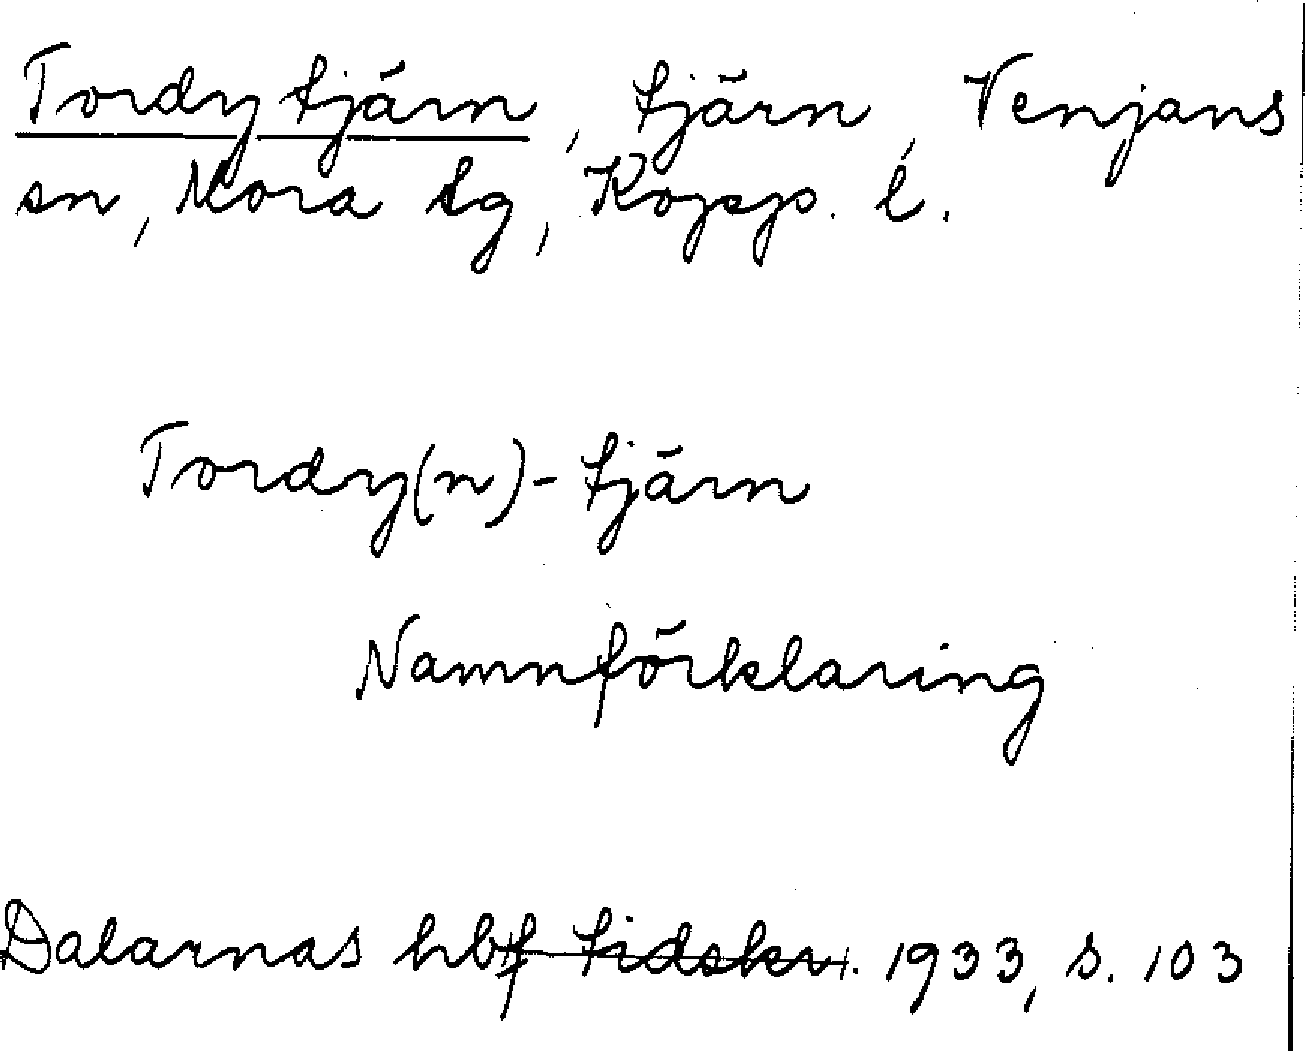 Tordytjärn, tjärn, Venjans
sn, Mora tg, Kopp. l.
Tordy(n)-tjärn
Namnförklaring
Dalarnas hbf tidskr. 1933, s. 103